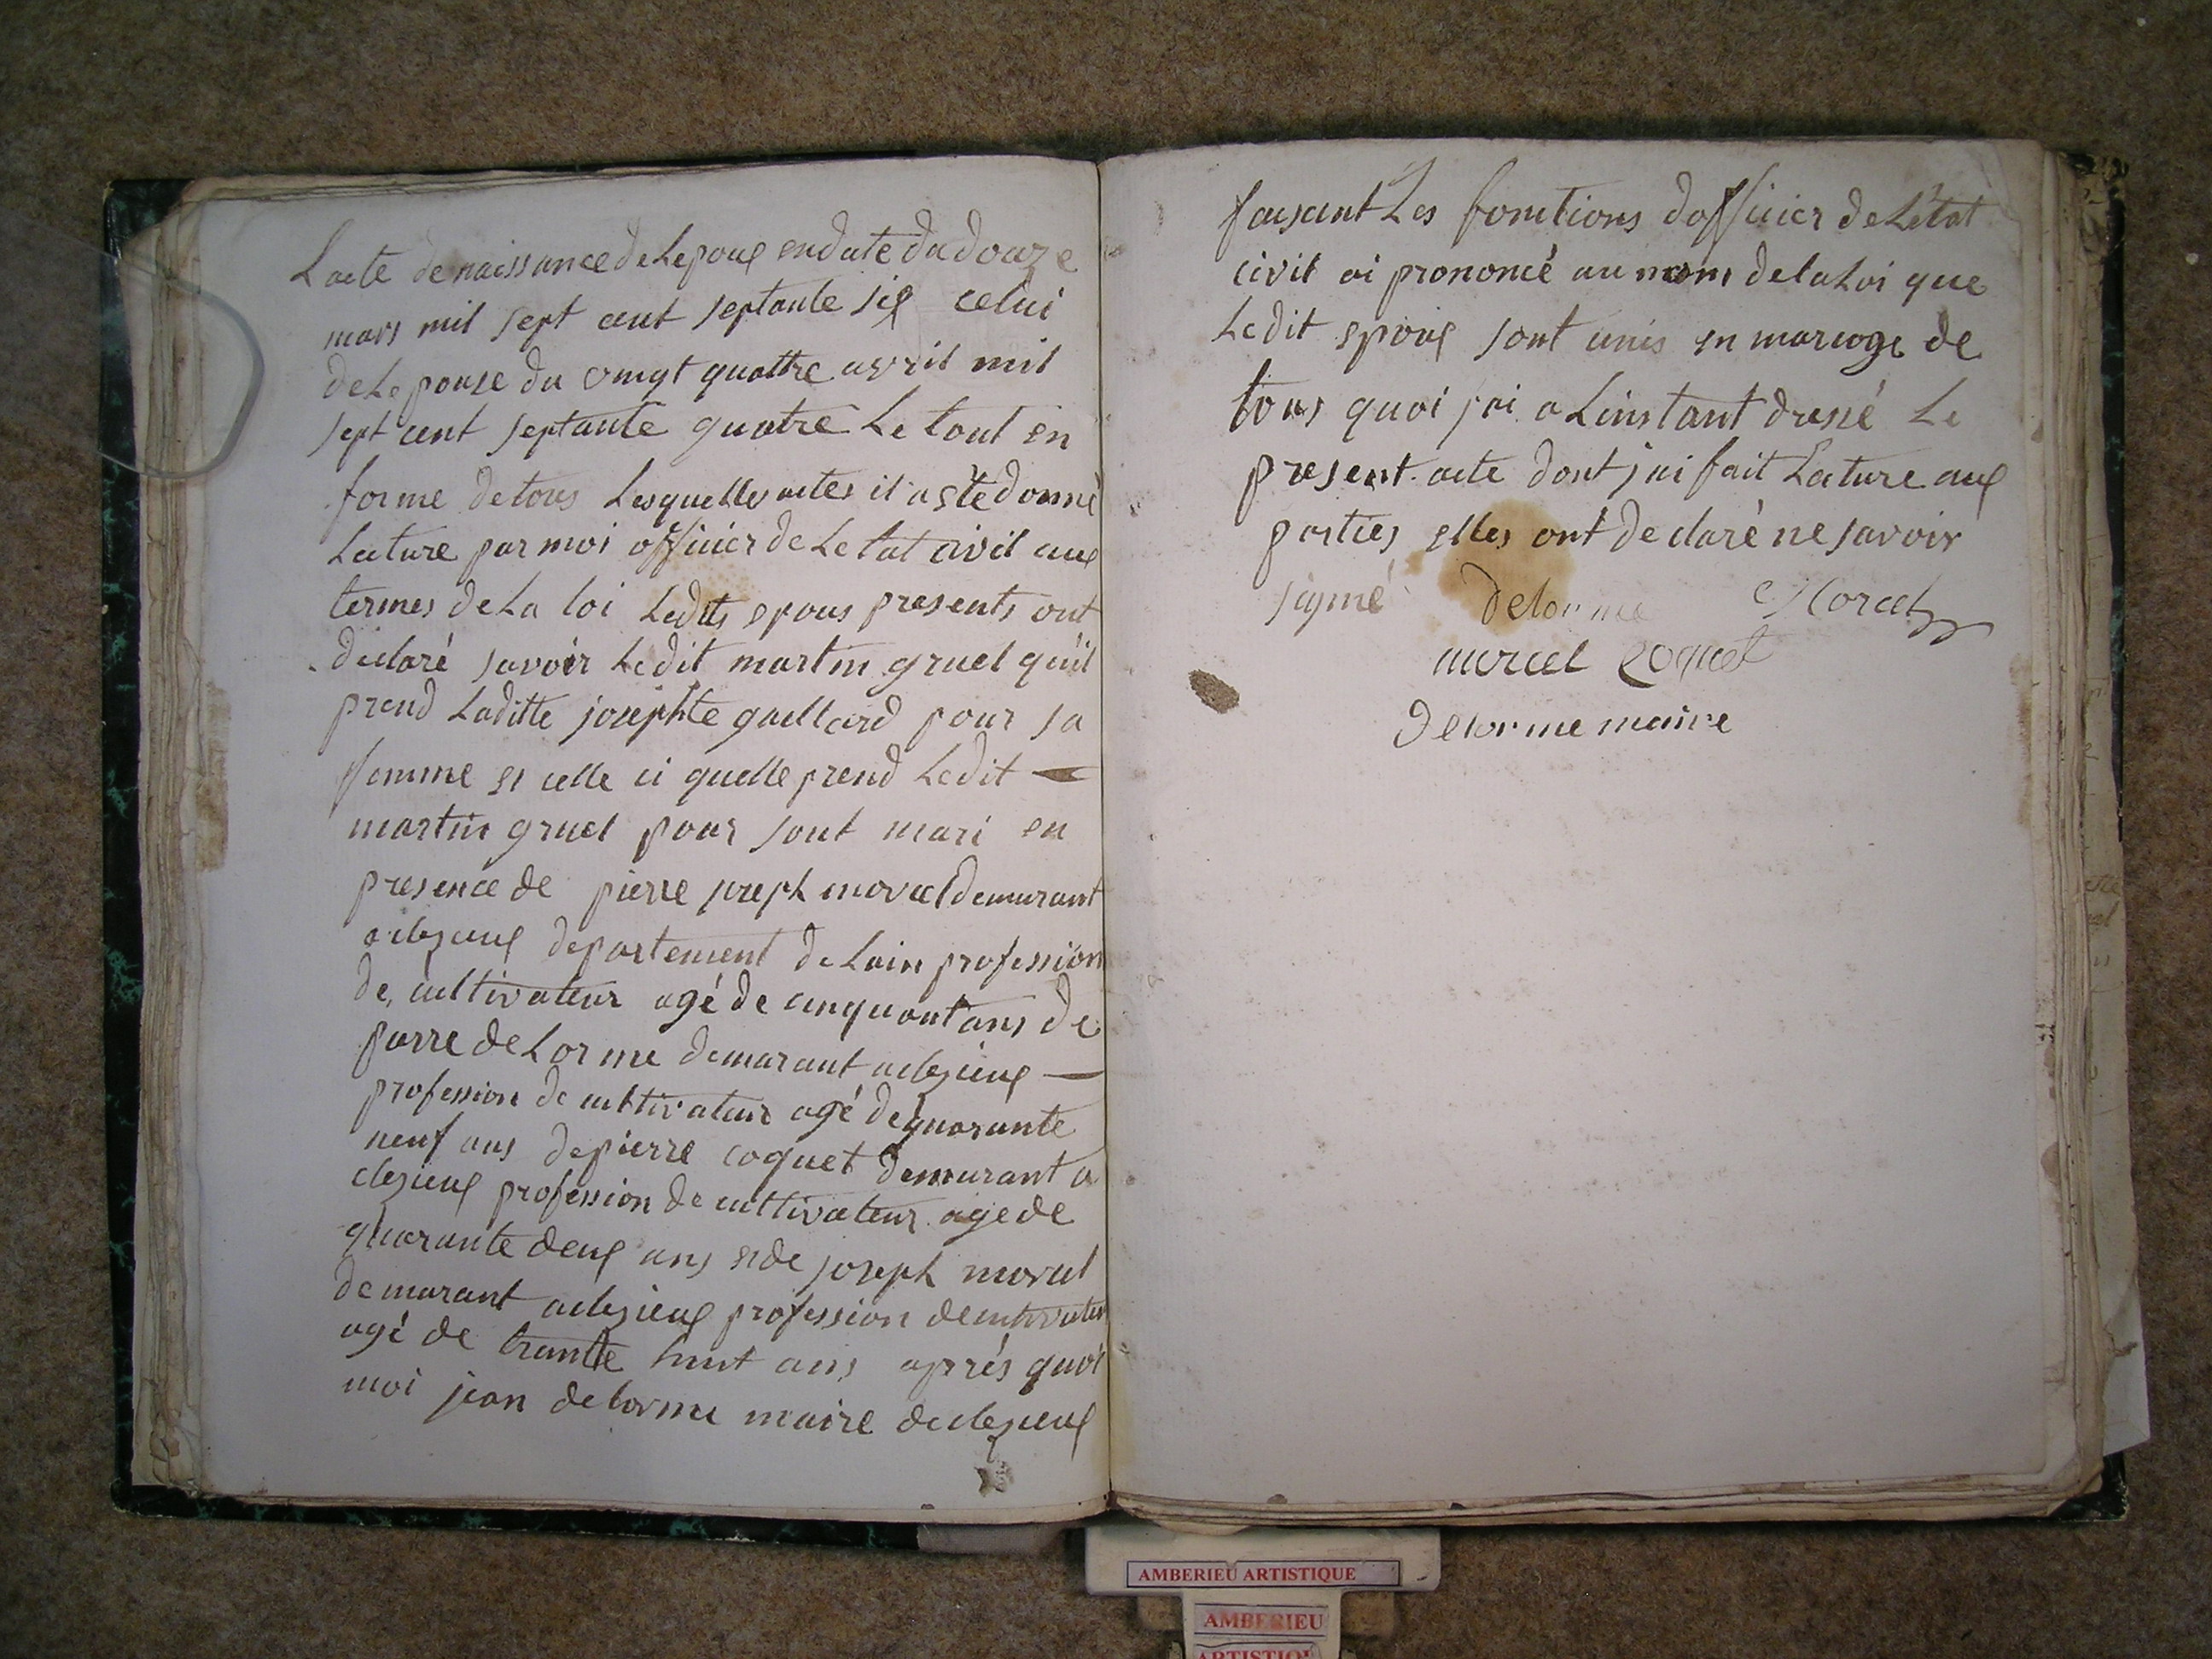 Lacte de naissance de Lepoux en date du douze
mars mil sept cent septante six celui
de Lepouse du vingt quattre avril mil
sept cent septante quatre Le tout en
forme de tous Lesquelles actes il a été donné
Lecture par moi officier de Letat civil aux
termes de La loi Ledits epous presents ont
declaré savoir Ledit martin gruel qu'il
prend Laditte josephte gaillard pour sa
femme et celle ci quelle prend Ledit
martin gruel pour sont mari en
presence de pierre joseph morcel demurant
a clezieux departement de Lain profession
de cultivateur agé de cinquant ans de
pierre deLorme demurant a clezieux
profession de cultivateur agé de quarante
neuf ans de pierre coquet demurant a
clezieux profession de cultivateur age de
quarante deux ans et de joseph morcel
demurant a clezieux profession de cultivateur
agé de trante huit ans après quoi
moi jean delorme maire de clezieux
faisant Les fonctions d'officier de Létat
civil ai prononcé au nom de la Loi que
Ledit epoux sont unis en mariage de
tous quoi j'ai a Linstant dressé Le
present acte dont j'ai fait Lecture aux
parties elles ont declaré ne savoir
signé delorme Morcel
morcel coquet
delorme maire
AMBERIEU ARTISTIQUE
AMBERIEU
ARTISTIQUE